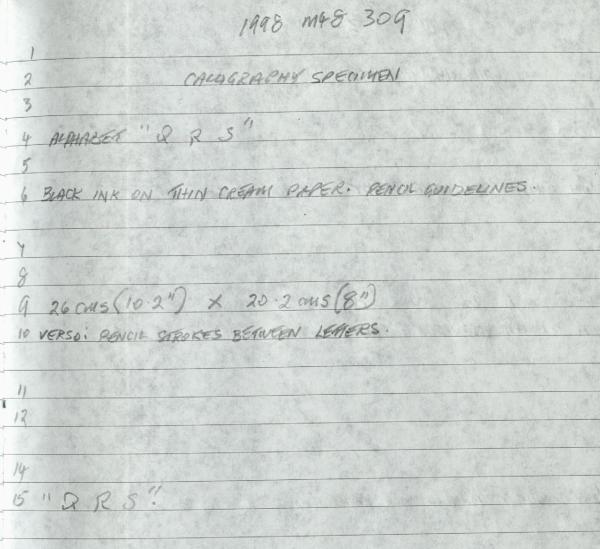 1998 M&8 30G
1
2 CALLIGRAPHY SPECIMEN
3
4 ALPHABET "Q R S"
5
6 BLACK INK ON THIN CREAM PAPER. PENCIL GUIDELINES.
7
8
9 26 cms (10.2") X 20.2 cms (8")
10 VERSO: PENCIL STROKES BETWEEN LETTERS.
11
12
14
15 "Q R S".